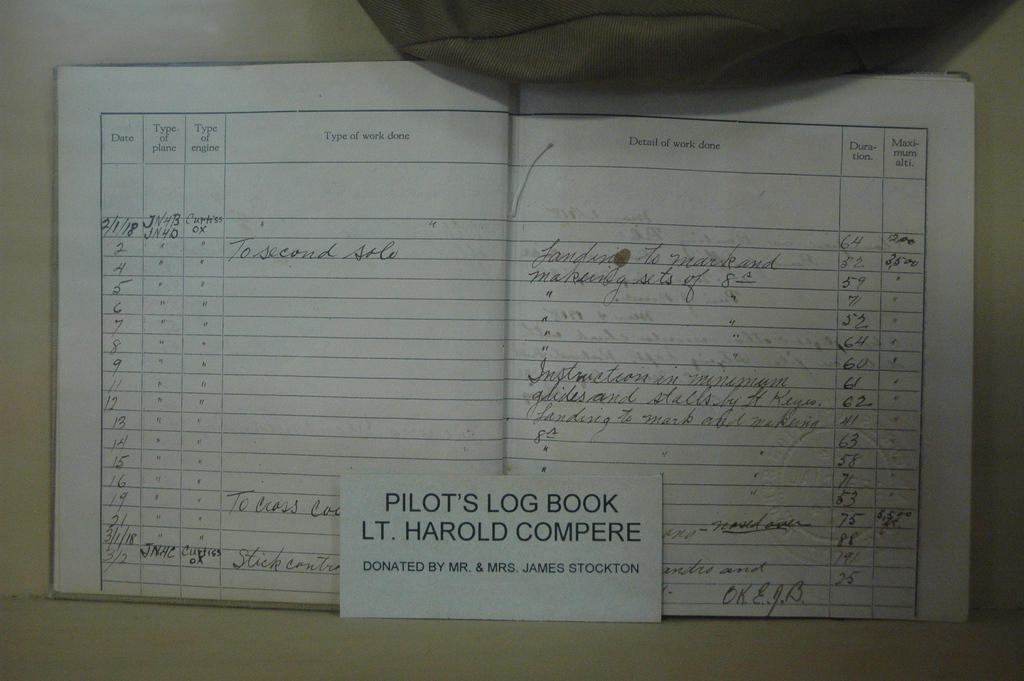 Date Type of plane Type of engine Type of work done Detail of work done Dura-tion. Maxi-mum alti.
2/1/18 JN4B JN4D Curtiss OX " "
2 " " To second solo 64 200
4 " " Landing to mark and 52 3,500
5 " " making sets of 8s 59 "
6 " " " " 71 "
7 " " " " 52 "
8 " " " " 64 "
9 " " 60 "
11 " " Instruction in minimum 61 "
12 " " glides and stalls by H Keyes. 62 "
13 " " Landing to mark and making 41 "
14 " " 8s 63 "
15 " " " " 58 "
16 " " " " 71 "
19 " " To cross " 53 "
21 " " 75 5,500
3/1/18 " " nosed over 88
3/2 JN4C Curtiss OX Stick 191
and 25
OK E.J.B.
PILOT'S LOG BOOK
LT. HAROLD COMPERE
DONATED BY MR. & MRS. JAMES STOCKTON